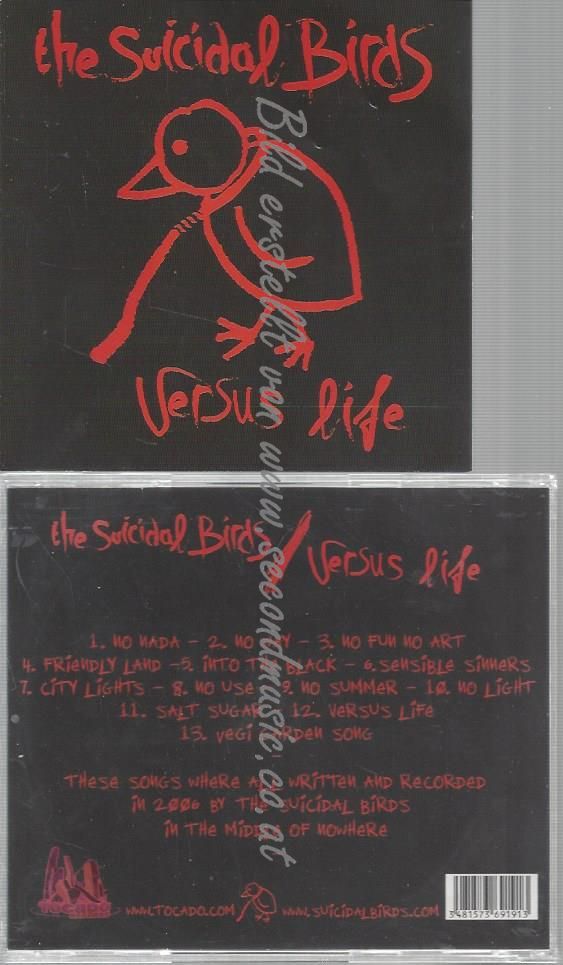 the Suicidal Birds
versus life
Bild erstellt von www.secondmusic.co.at
the Suicidal Birds / versus life
1. no nada - 2. no - 3. no fun no art
4. friendly land - 5. into the black - 6. sensible sinners
7. city lights - 8. no use - 9. no summer - 10. no light
11. salt sugar - 12. versus life
13. vegi garden song
These songs where all written and recorded
in 2006 by the suicidal birds
in the middle of nowhere
TOCADO
www.tocado.com www.suicidalbirds.com
3 481573 691913